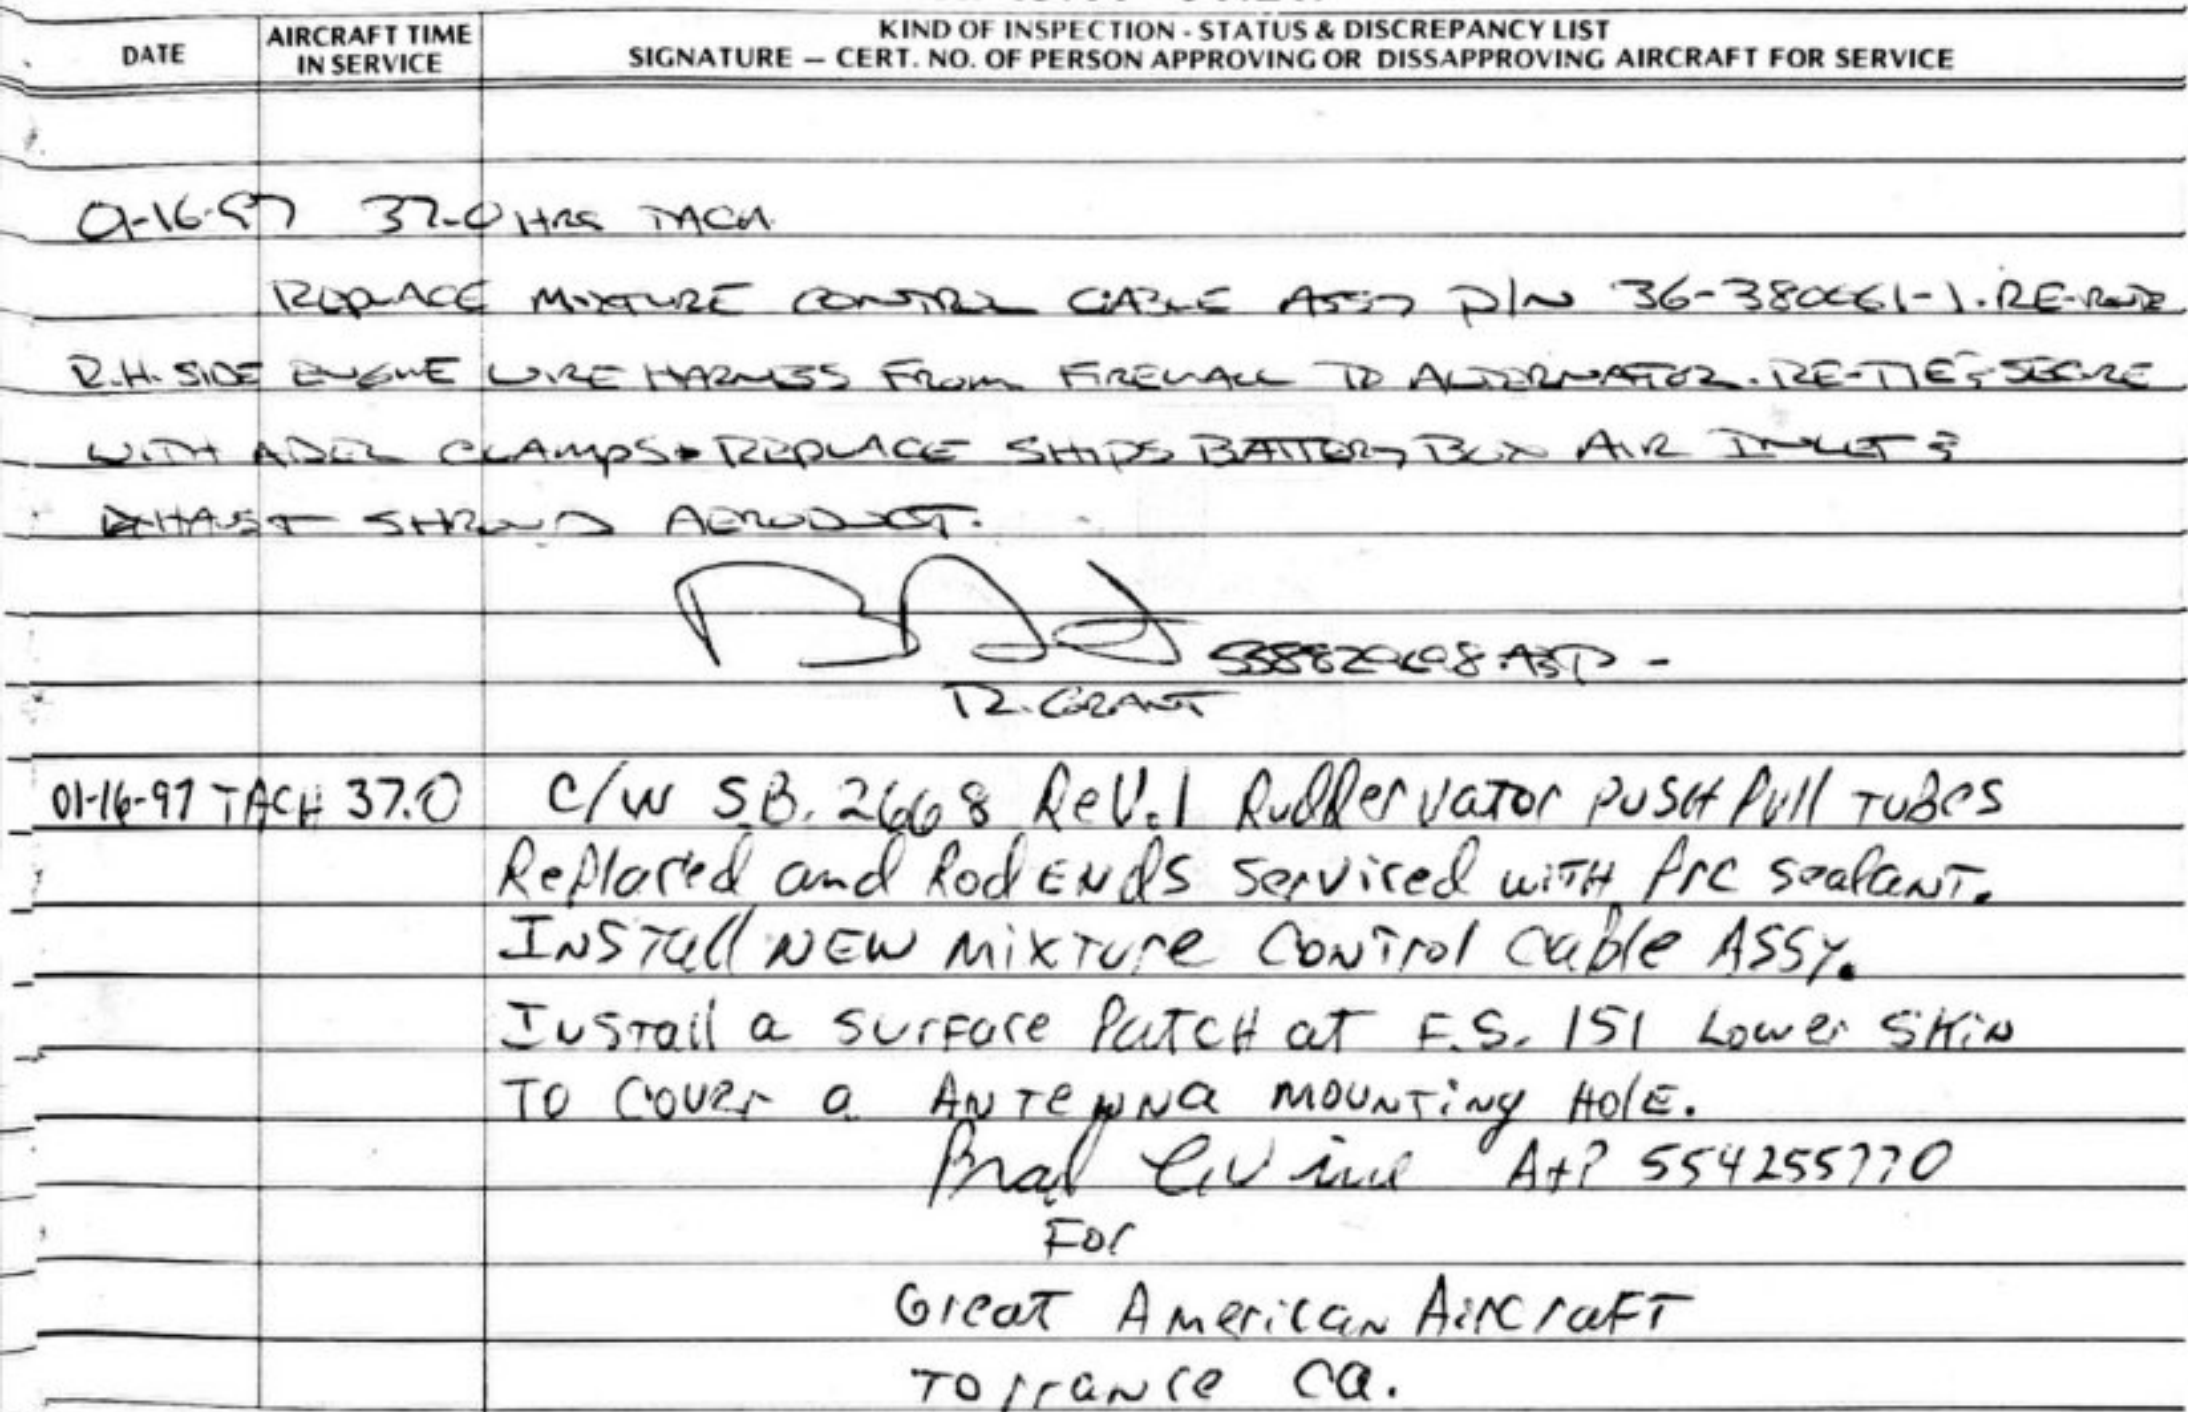 DATE
AIRCRAFT TIME IN SERVICE
KIND OF INSPECTION - STATUS & DISCREPANCY LIST
SIGNATURE — CERT. NO. OF PERSON APPROVING OR DISSAPPROVING AIRCRAFT FOR SERVICE
01-16-97 37.0 HRS TACH
REPLACE MIXTURE CONTROL CABLE ASSY P/N 36-380061-1. RE-ROUTE
R.H. SIDE ENGINE WIRE HARNESS FROM FIREWALL TO ALTERNATOR. RE-TIE & SECURE
WITH ADEL CLAMPS. REPLACE SHIPS BATTERY BOX AIR INLET &
EXHAUST SHROUD AERODUCT.
A&P -
R. GRANT
01-16-97 TACH 37.0 C/W S.B. 2668 Rev.1 Ruddervator PUSH Pull TUBES
Replaced and Rod ENdS serviced WITH Prc sealaNT.
INSTall NEW MixTure CoNTrol Cable ASSY.
INSTall a surFace PaTCH at F.S. 151 Lower SKiN
TO COVEr a ANTeNNa MOUNTiNg HolE.
Brad A+P 554255770
For
Great AmericaN AirCraFT
TorraNce Ca.